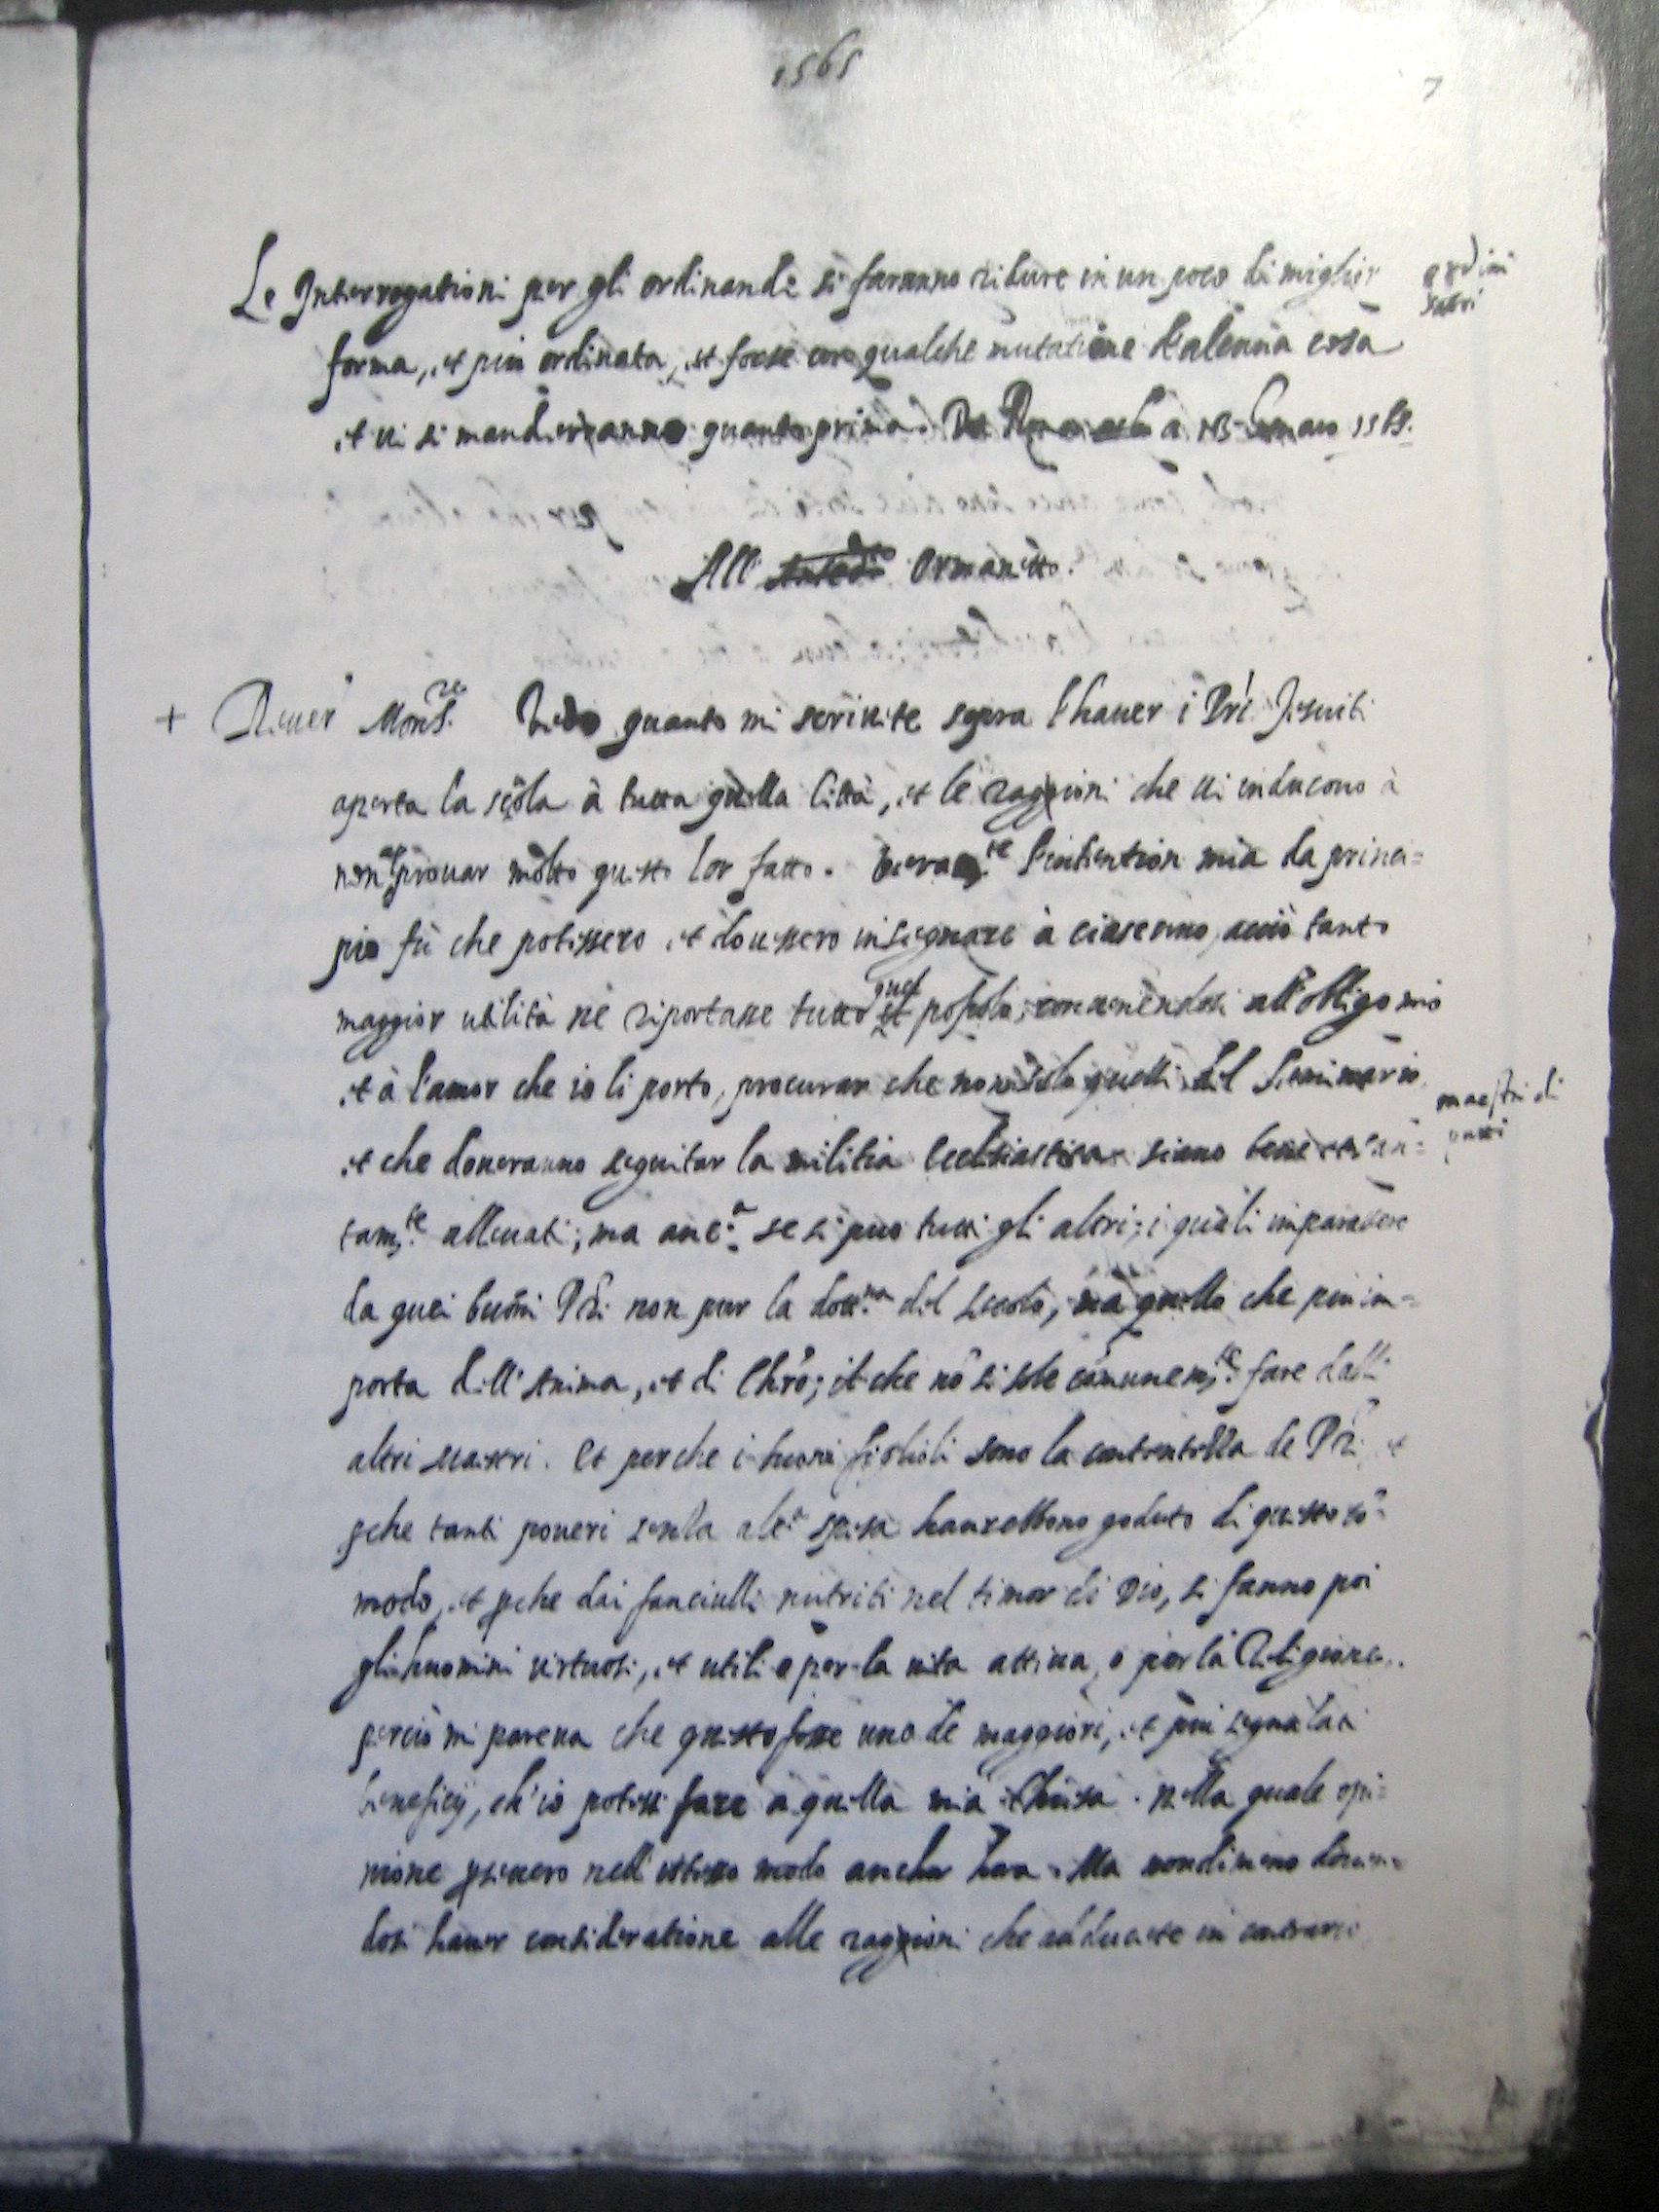 1565
7
Le Interrogationi per gli ordinandi si faranno ridure in un poco di miglior
ordini
sacri
forma, et piu ordinata, et forse con qualche mutatione d'alcuna cosa
et vi si manderanno quanto prima. Di Roma a 13 1565.
All' Ormanetto.
+ Rever.do Mons.re Vedo quanto mi scrivite sopra l'haver i Pri Jesuiti
aperta la scola à tutta quella Città, et le raggioni che vi inducono à
non approvar molto questo lor fatto. Veram.te l'intention mia da princi=
pio fù che potessero et dovessero insegnare à ciascuno, acciò tanto
maggior utilità ne riportasse tutto quel popolo, convenendosi all'obligo mio
et à l'amor che io li porto, procurar che non solo quelli del Seminario
maestri di
putti
et che doveranno seguitar la militia Ecclesiastica siano bene et san=
tam.te allevati; ma anc.a se si può tutti gli altri; i quali imparassero
da quei buoni Pri non pur la dott.na del secolo, ma quella che piu im=
porta dell'Anima, et di Chro; il che nõ si sole cõmunem.te fare dalli
altri Mastri. Et perche i buoni figlioli sono la contentezza de Pri et
pche tanti poveri senza alc.a spesa haurebbono goduto di questo cõ=
modo, et pche dai fanciulli nutriti nel timor di Dio, si fanno poi
gli huomini virtuosi, et utili o per la vita attiva, o per la Religione.
perciò mi pareva che questo fosse uno de maggiori, et piu segnalati
beneficij, ch'io potessi fare à quella mia Chiesa. nella quale opi=
nione psevero nell'istesso modo anchor hora. Ma nondimeno dovn=
dosi haver consideratione alle raggioni che adducete in contrario